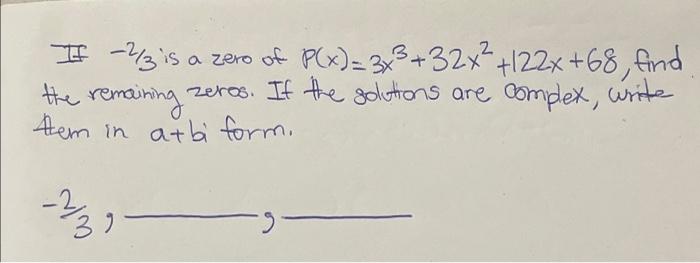 If -2/3 is a zero of P(x)=3x³+32x²+122x+68, find
the remaining zeros. If the solutions are complex, write
them in a+bi form.
-2/3, ________, ________